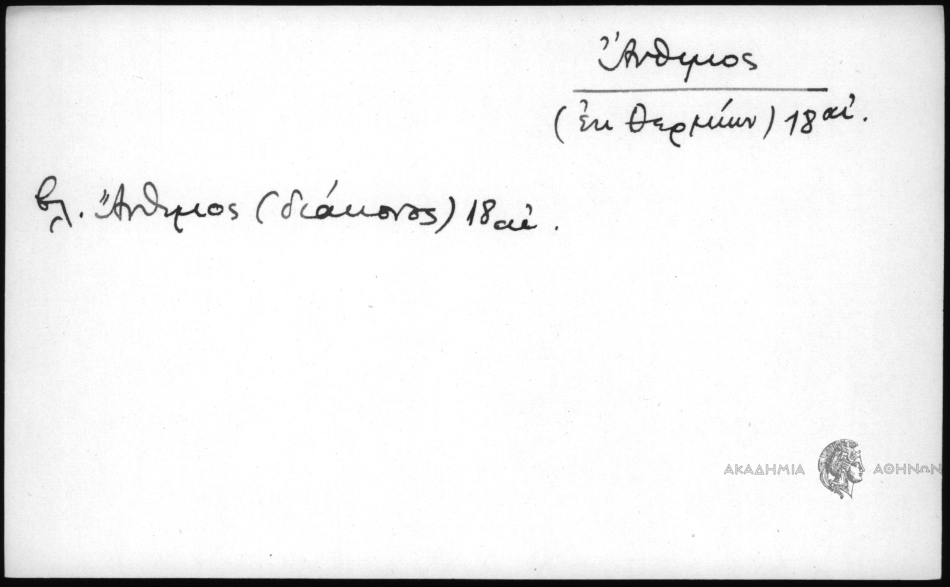 Ἄνθιμος
(ἐκ Θερμίων) 18 αἰ.
βλ. Ἄνθιμος (διάκονος) 18 αἰ.
ΑΚΑΔΗΜΙΑ ΑΘΗΝΩΝ